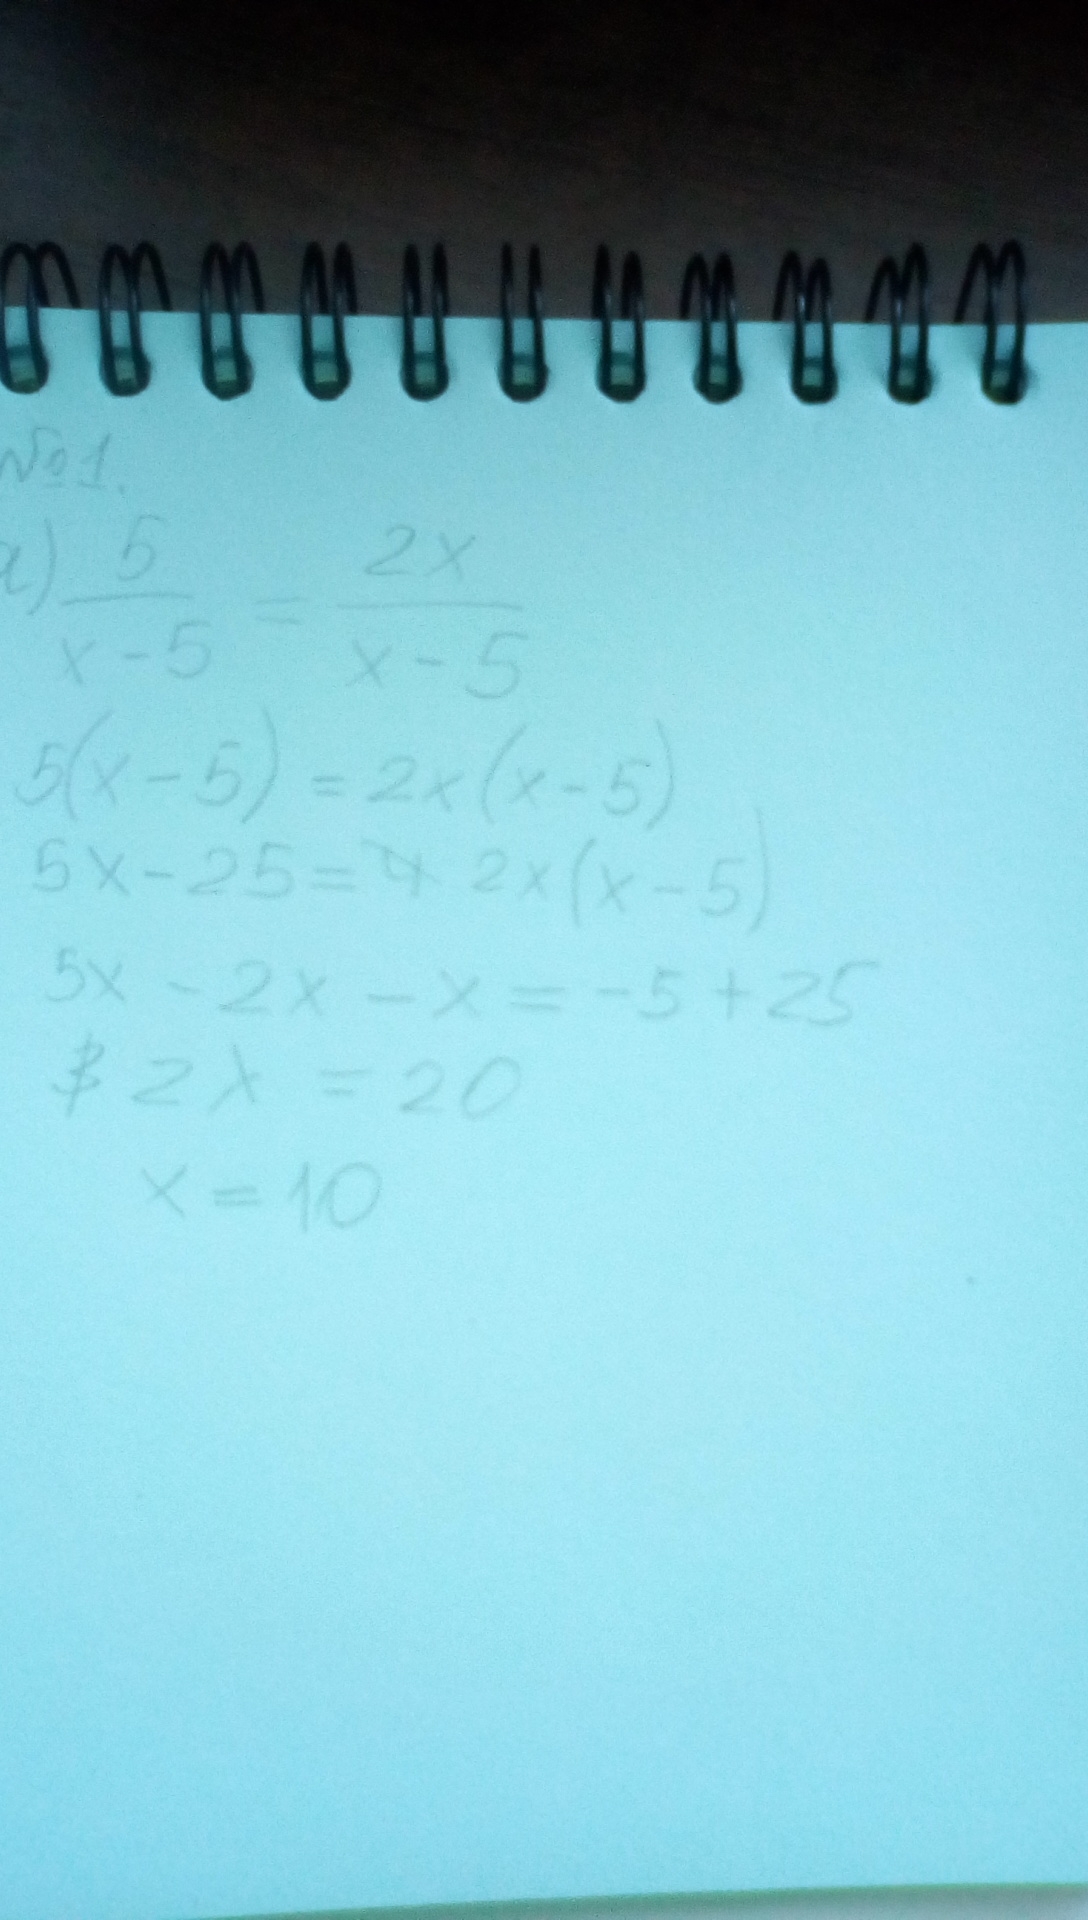 №1.
а) 5/(x-5) = 2x/(x-5)
5(x-5) = 2x(x-5)
5x-25= 2x(x-5)
5x - 2x - x = -5+25
2x = 20
x = 10